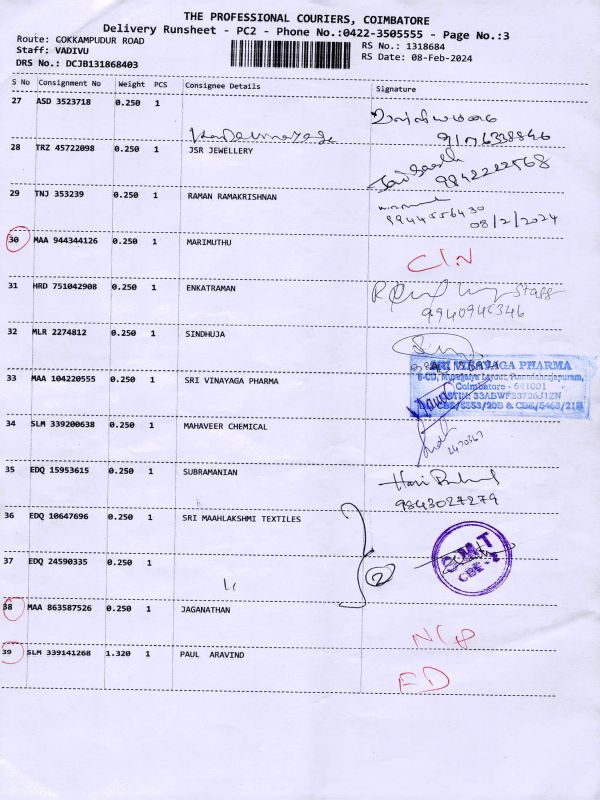 THE PROFESSIONAL COURIERS, COIMBATORE
Delivery Runsheet - PC2 - Phone No.:0422-3505555 - Page No.:3
Route: COKKAMPUDUR ROAD
RS No.: 1318684
Staff: VADIVU
RS Date: 08-Feb-2024
DRS No.: DCJB131868403
S No Consignment No Weight PCS Consignee Details Signature
27 ASD 3523718 0.250 1
9176338846
28 TRZ 45722098 0.250 1 JSR JEWELLERY
9842222568
29 TNJ 353239 0.250 1 RAMAN RAMAKRISHNAN
9944556430
08/2/2024
30 MAA 944344126 0.250 1 MARIMUTHU
C/N
31 HRD 751042908 0.250 1 ENKATRAMAN
Staff
9940945346
32 MLR 2274812 0.250 1 SINDHUJA
VINAYAGA PHARMA
Coimbatore - 641001
33 MAA 104220555 0.250 1 SRI VINAYAGA PHARMA
GSTIN: 33ABWFS3726J1ZN
CBS/5553/20B & CBE/5463/21B
34 SLM 339200638 0.250 1 MAHAVEER CHEMICAL
35 EDQ 15953615 0.250 1 SUBRAMANIAN
Hari
9843027279
36 EDQ 10647696 0.250 1 SRI MAAHLAKSHMI TEXTILES
37 EDQ 24590335 0.250 1
2
SMT
CBE-2
38 MAA 863587526 0.250 1 JAGANATHAN
39 SLM 339141268 1.320 1 PAUL ARAVIND
ED